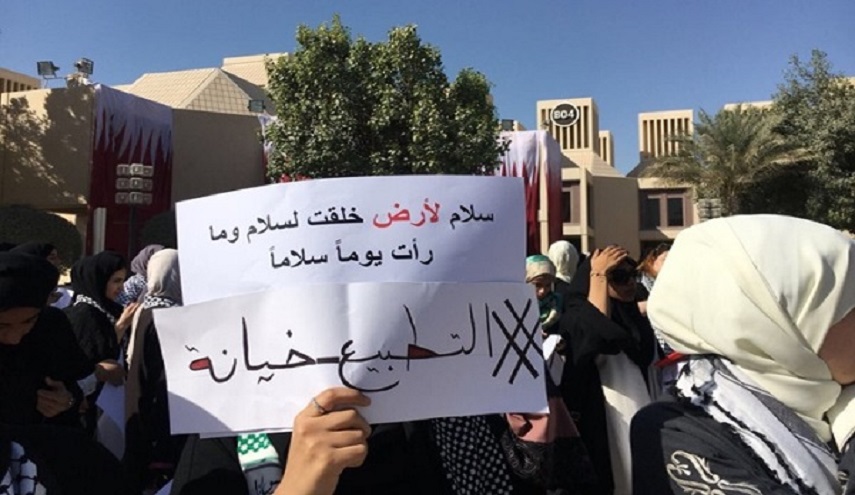 سلام لأرض خلقت لسلام وما
رأت يوماً سلاماً
التطبيع خيانة
804